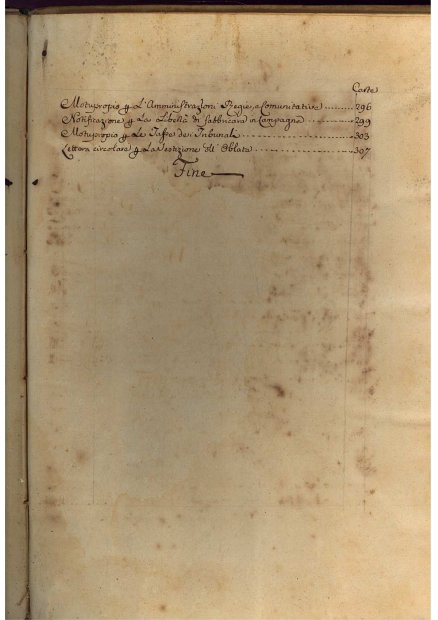 Carte
Motuproprio p L'Amministrazioni Regie, e Comunitative ........ 296
Notificazione p La Libertà di fabbricare in Campagna ........ 299
Motuproprio p Le Tasse de Tribunali ........ 303
Lettera circolare p La vestizione dell' Oblate ........ 307
Fine